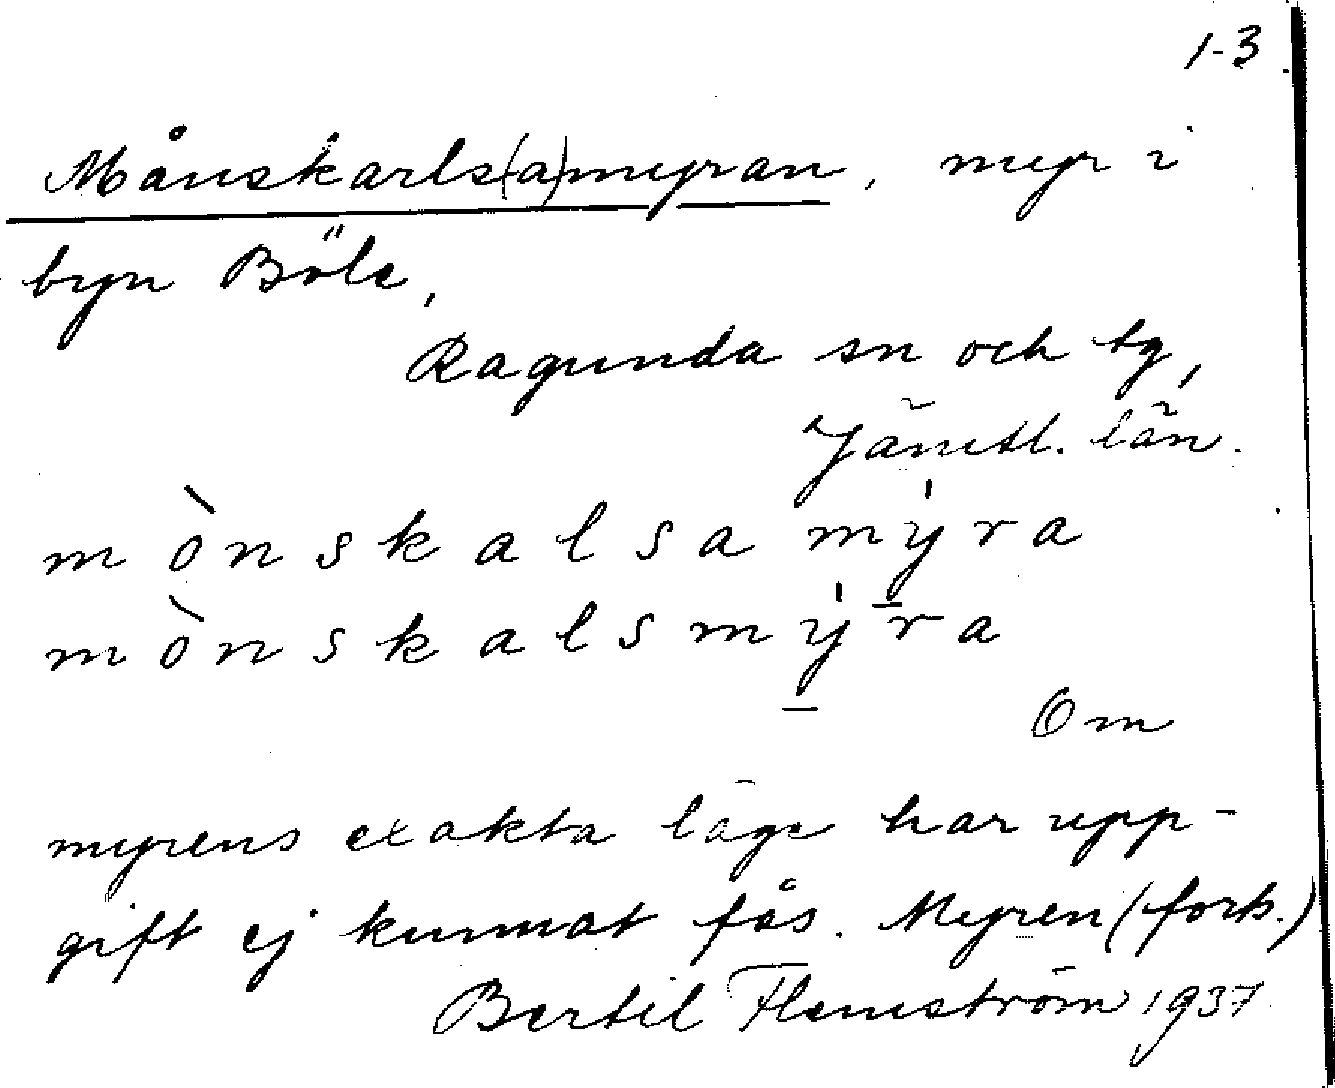 1-3
Månskarls(a)myran, myr i
byn Böle,
Ragunda sn och tg,
Jämtl. län.
mònskalsamýra
mònskalsmýra
Om
myrens exakta läge har upp-
gift ej kunnat fås. Myren (forts.)
Bertil Flemström 1937